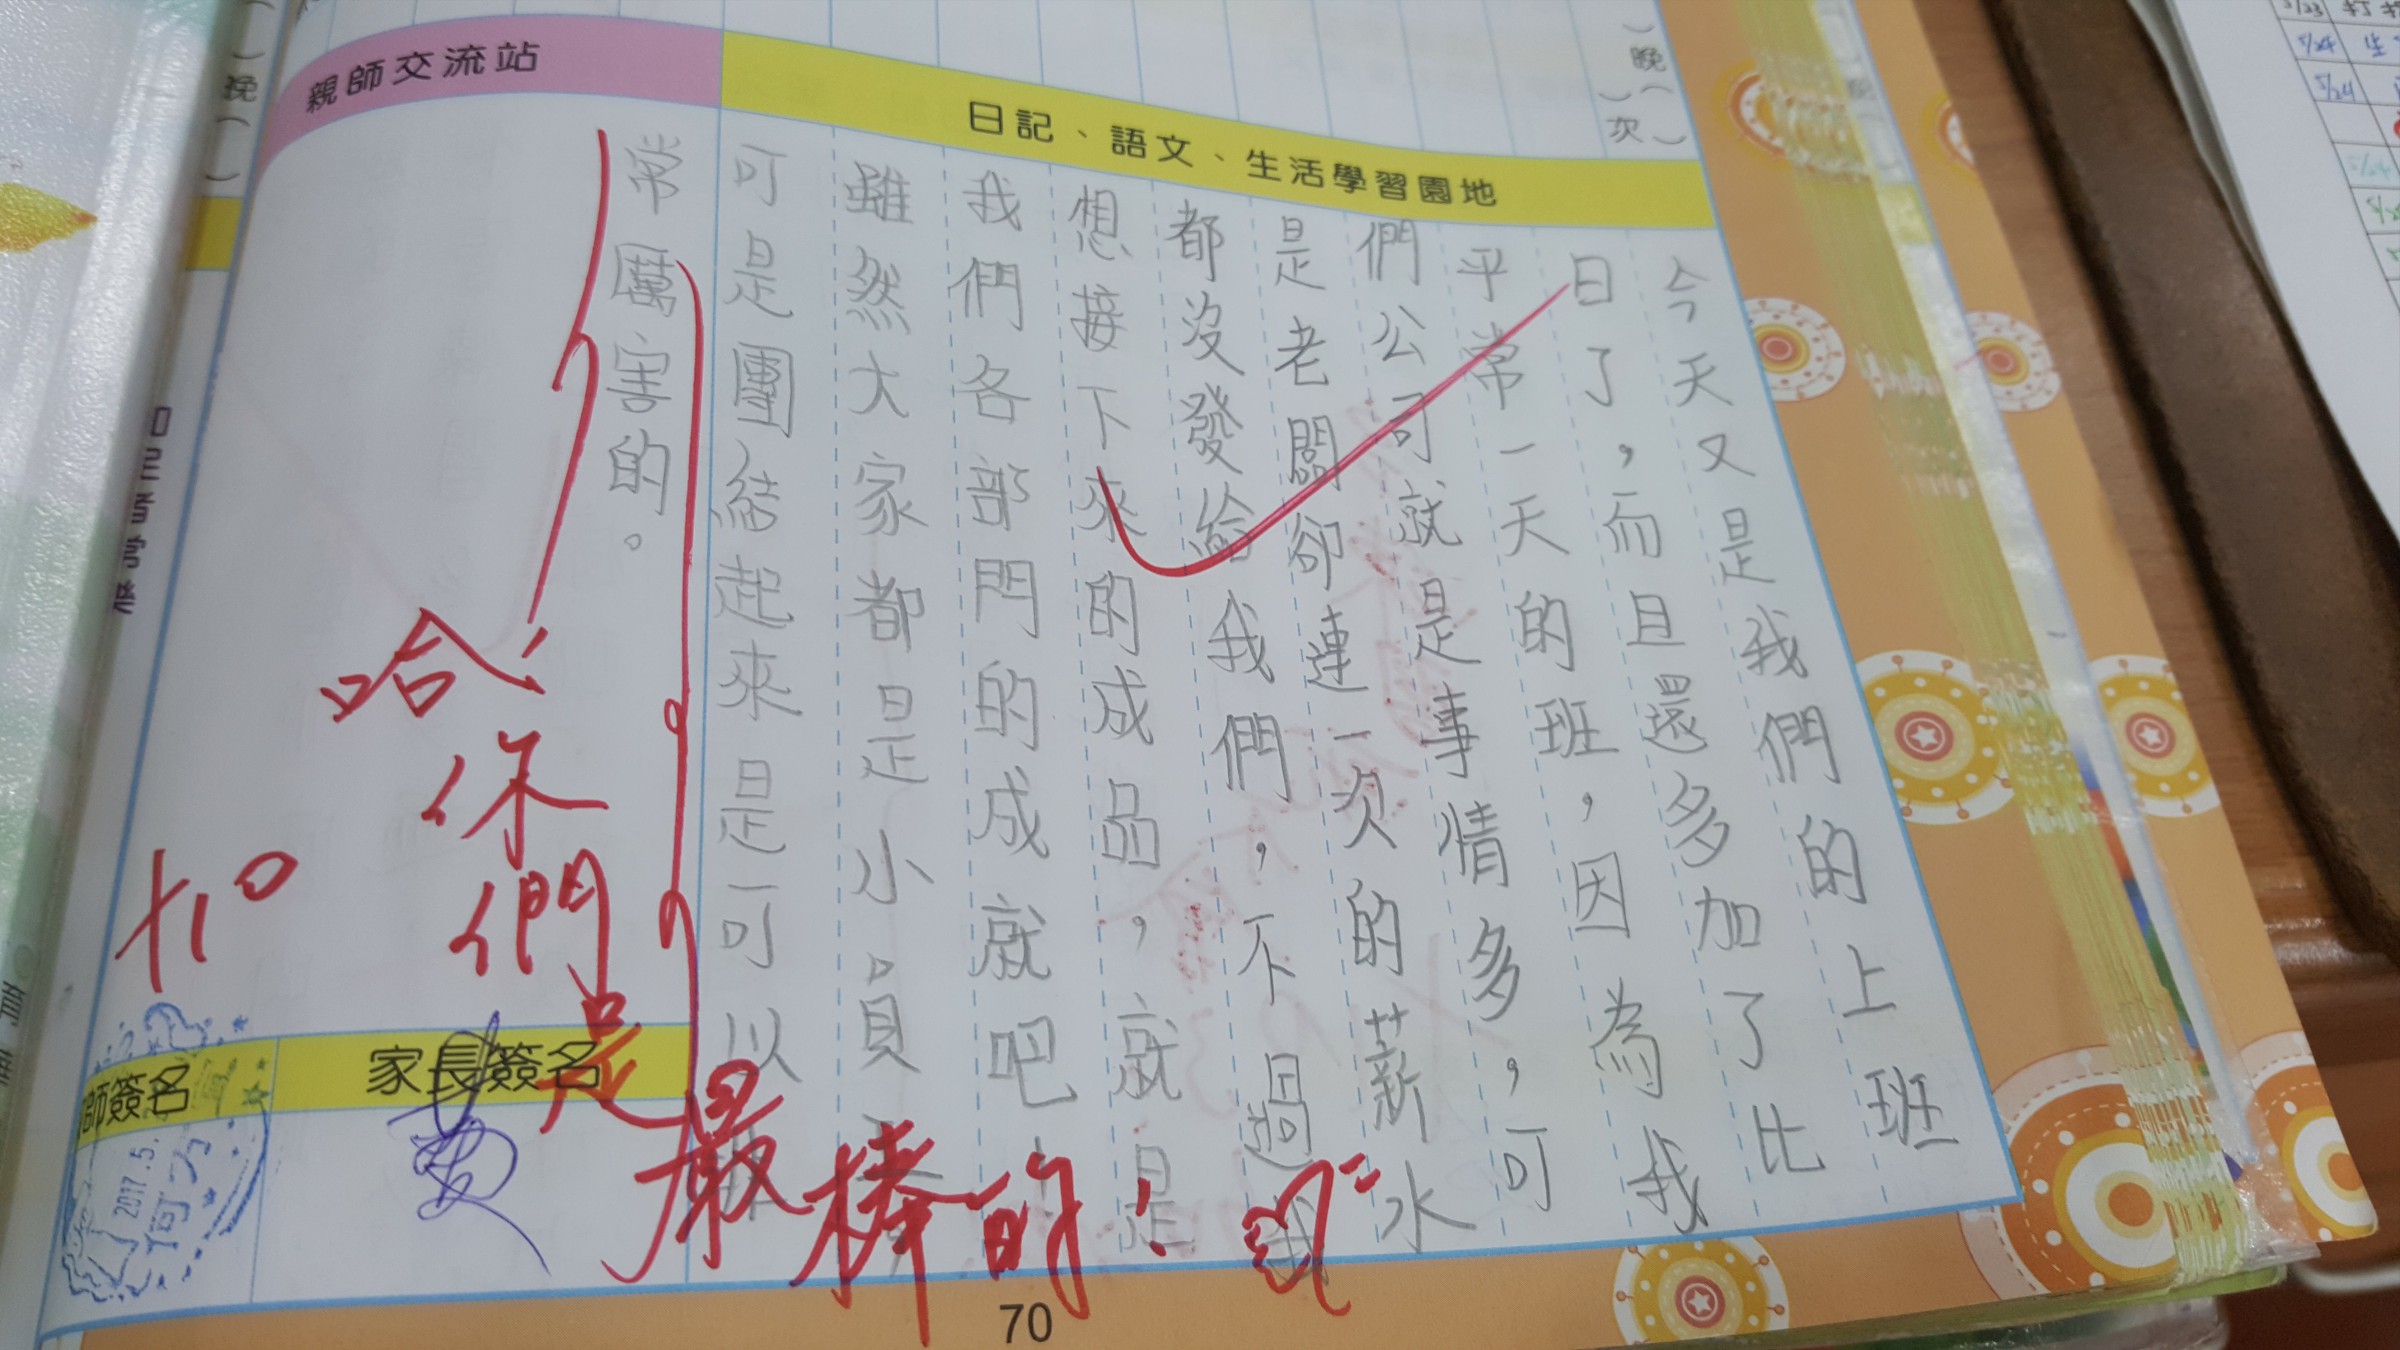 親師交流站
日記、語文、生活學習園地
今天又是我們的上班
日了，而且還多加了比
平常一天的班，因為我
們公司就是事情多，可
是老闆卻連一次的薪水
都沒發給我們，不過我
想接下來的成品，就是
我們各部門的成就吧！
雖然大家都是小員
可是團結起來是可以
常厲害的。
哈
你們是最棒的！
家長簽名
師簽名
2017.5.
70
晚
次
晚